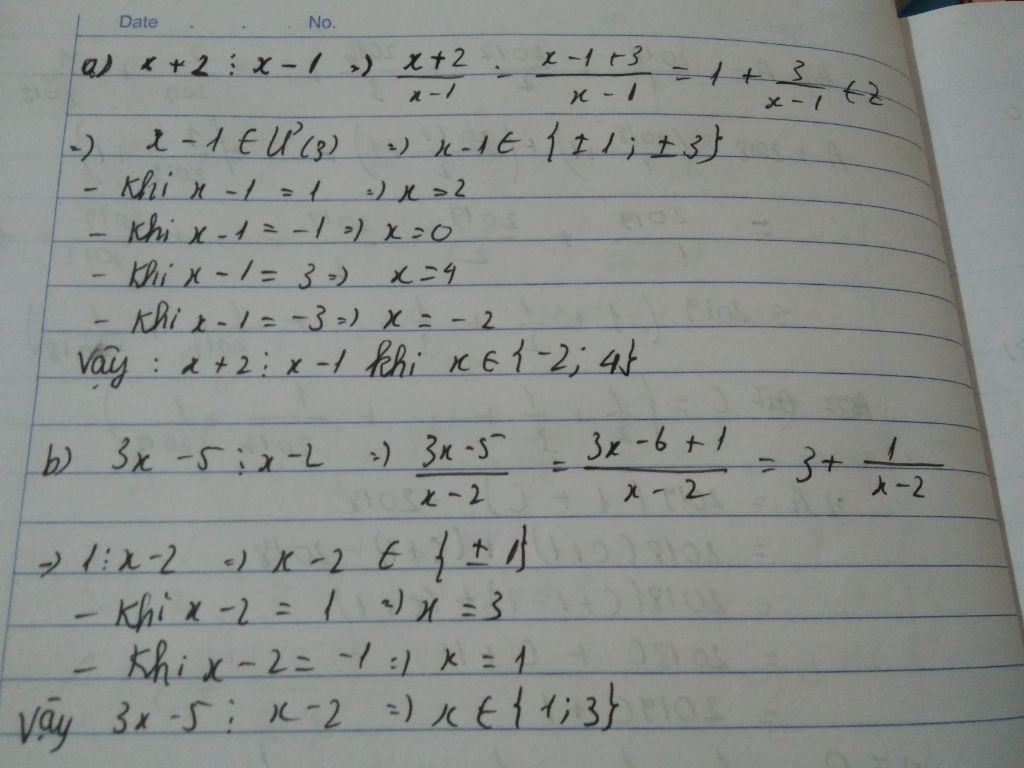 Date . . No.
a) x + 2 ⋮ x - 1 => \frac{x+2}{x-1} = \frac{x-1+3}{x-1} = 1 + \frac{3}{x-1} ∈ Z
=> x - 1 ∈ Ư(3) => x - 1 ∈ {± 1; ± 3}
- Khi x - 1 = 1 => x = 2
- Khi x - 1 = -1 => x = 0
- Khi x - 1 = 3 => x = 4
- Khi x - 1 = -3 => x = -2
Vậy : x + 2 ⋮ x - 1 khi x ∈ {-2; 4}
b) 3x - 5 ⋮ x - 2 => \frac{3x-5}{x-2} = \frac{3x-6+1}{x-2} = 3 + \frac{1}{x-2}
=> 1 ⋮ x - 2 => x - 2 ∈ {± 1}
- Khi x - 2 = 1 => x = 3
- Khi x - 2 = -1 => x = 1
Vậy 3x - 5 ⋮ x - 2 => x ∈ {1; 3}